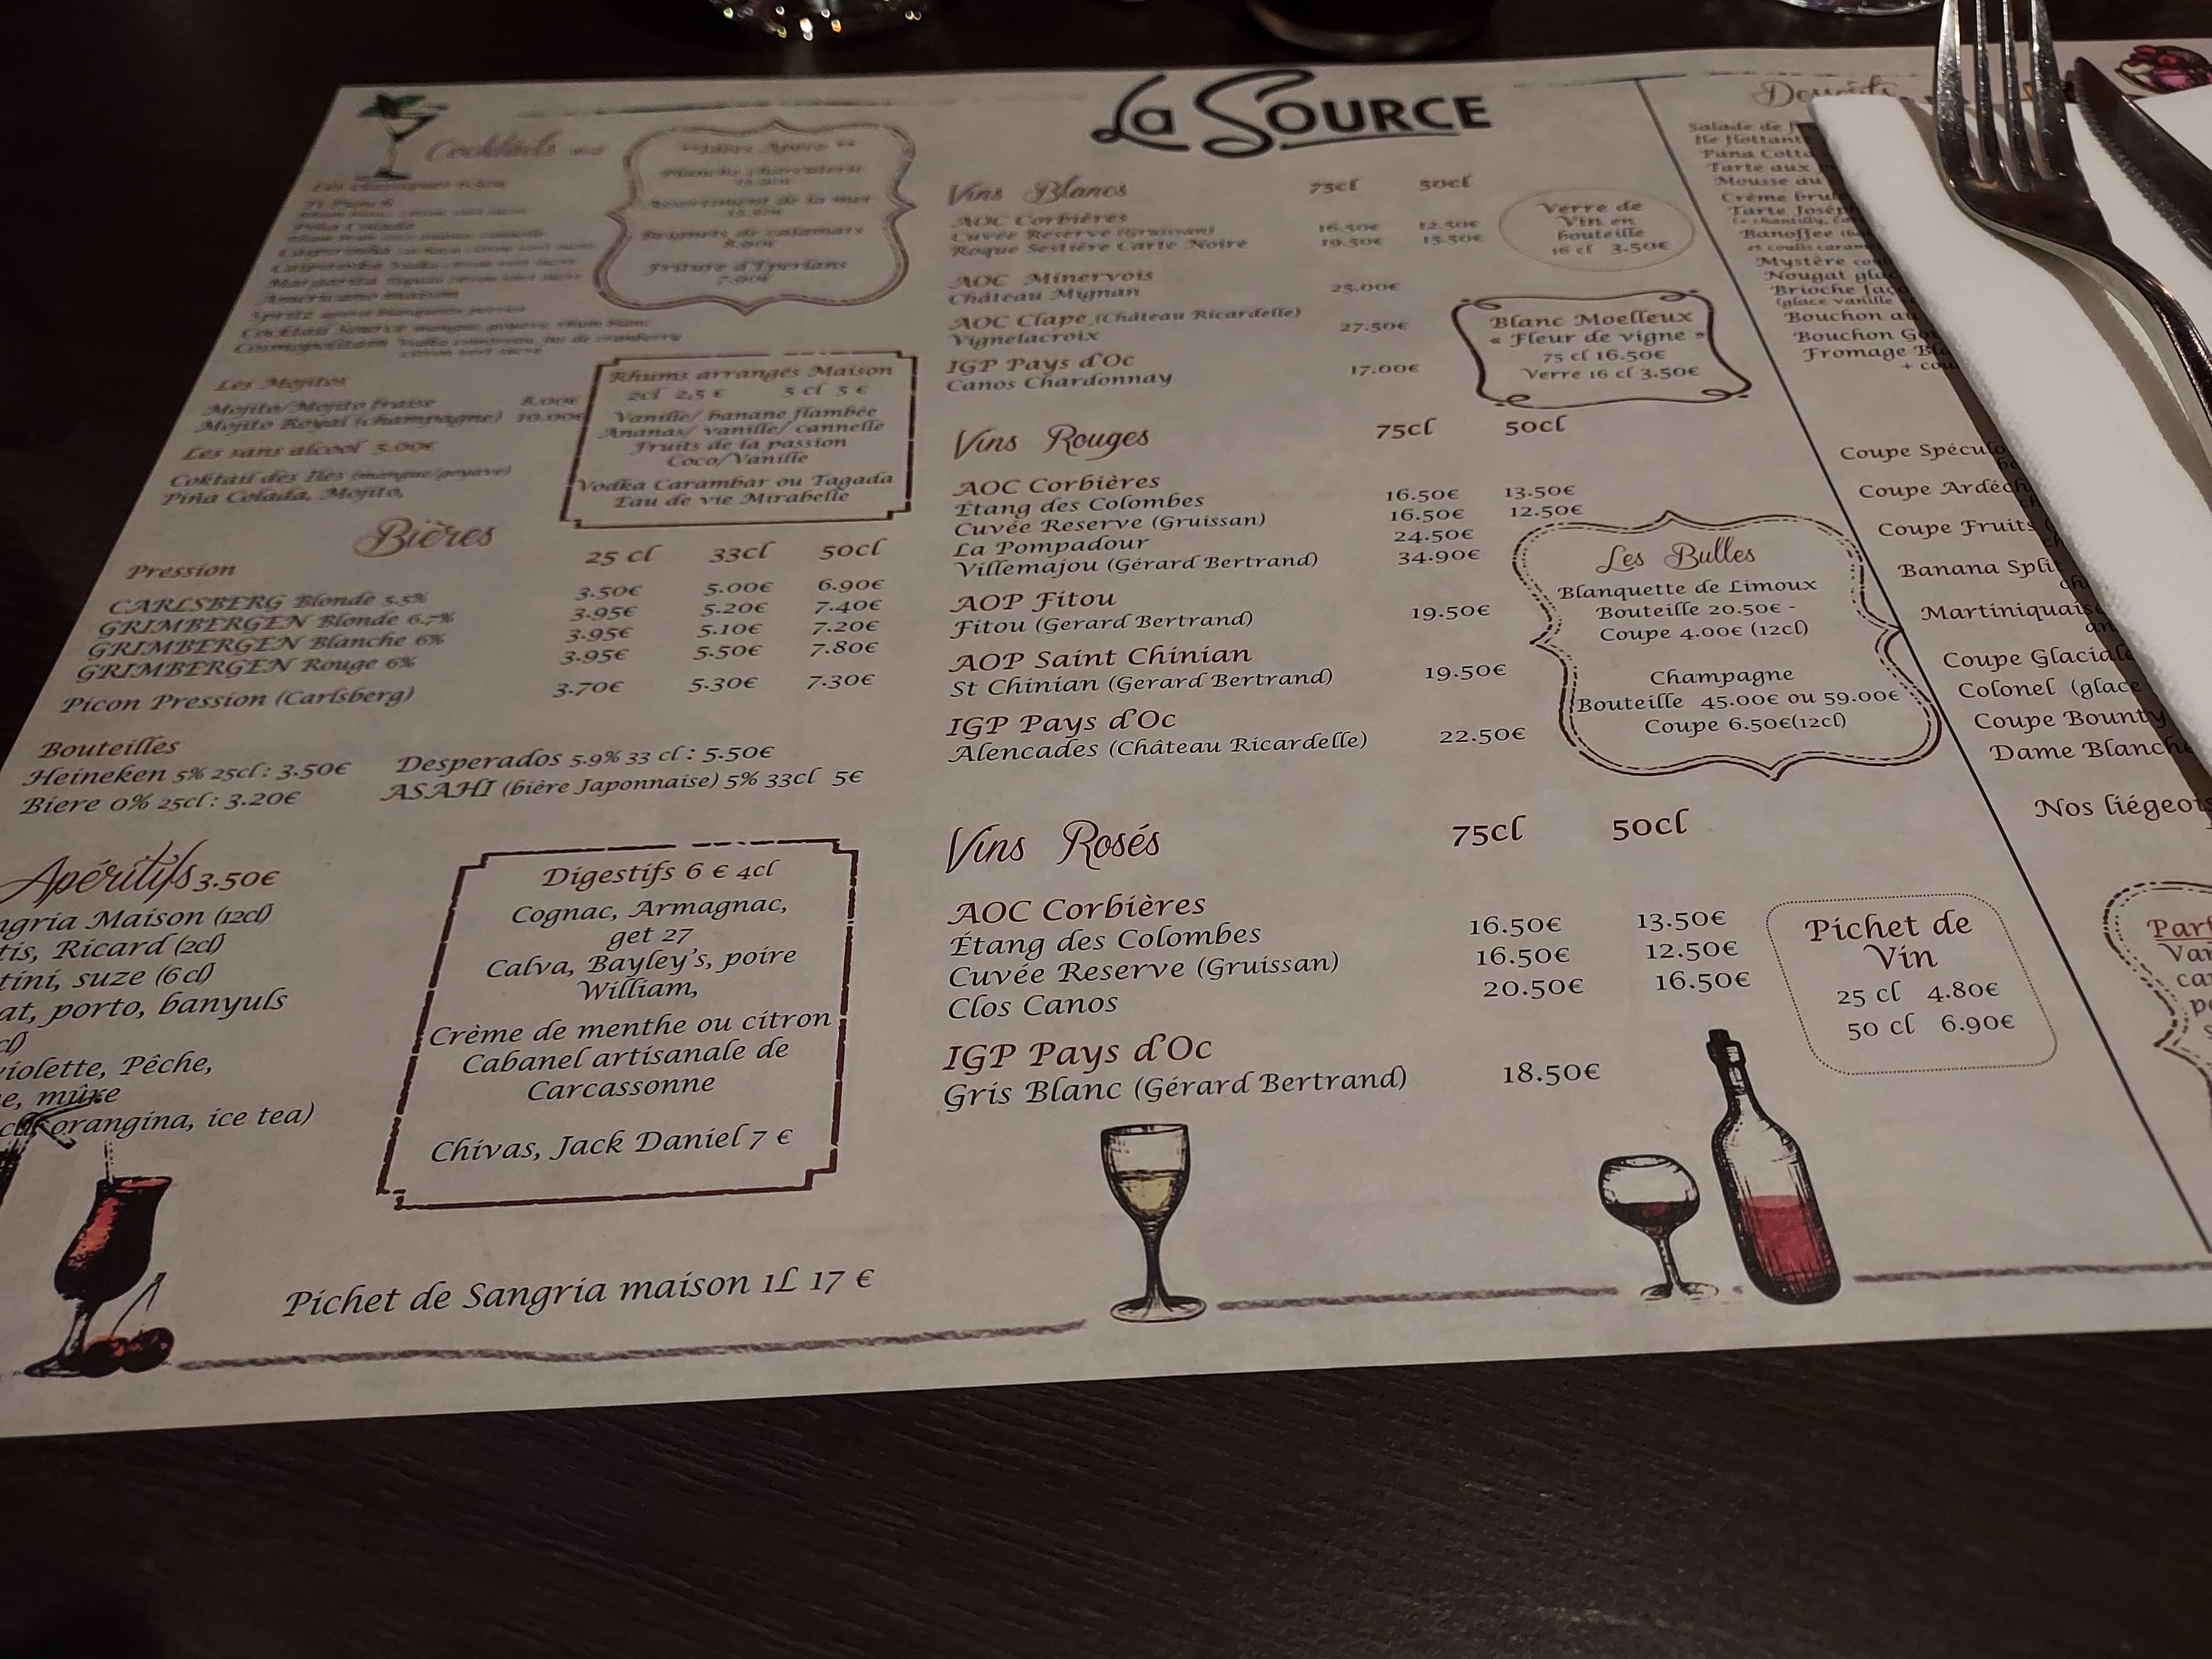 La Source
Cocktails
Les Mojitos
Mojito/Mojito fraise 8.00€
Mojito Royal (champagne) 10.00€
Les sans alcool 5.00€
Coktail des Iles (mangue/goyave)
Piña Colada, Mojito,
Planche charcuterie
Assortiment de la mer
Beignets de calamars
Friture d'Eperlans
7.00€
Rhums arrangés Maison
2cl 2,5 € 5 cl 5 €
Vanille/ banane flambée
Ananas/ vanille/ cannelle
Fruits de la passion
Coco/Vanille
Vodka Carambar ou Tagada
Eau de vie Mirabelle
Bières
Pression 25 cl 33cl 50cl
CARLSBERG Blonde 5.5% 3.50€ 5.00€ 6.90€
GRIMBERGEN Blonde 6.7% 3.95€ 5.20€ 7.40€
GRIMBERGEN Blanche 6% 3.95€ 5.10€ 7.20€
GRIMBERGEN Rouge 6% 3.95€ 5.50€ 7.80€
Picon Pression (Carlsberg) 3.70€ 5.30€ 7.30€
Bouteilles
Heineken 5% 25cl : 3.50€ Desperados 5.9% 33 cl : 5.50€
Biere 0% 25cl : 3.20€ ASAHI (bière Japonnaise) 5% 33cl 5€
Apéritifs 3.50€
ngria Maison (12cl)
tis, Ricard (2cl)
tini, suze (6 cl)
at, porto, banyuls
cl)
violette, Pêche,
e, mûre
orangina, ice tea)
Digestifs 6 € 4cl
Cognac, Armagnac,
get 27
Calva, Bayley's, poire
William,
Crème de menthe ou citron
Cabanel artisanale de
Carcassonne
Chivas, Jack Daniel 7 €
Pichet de Sangria maison 1L 17 €
Vins Blancs 75cl 50cl
AOC Corbières
Cuvée Reserve (Gruissan) 16.50€ 12.50€
Roque Sestière Carte Noire 19.50€ 15.50€
AOC Minervois
Château Mignan 25.00€
AOC Clape (Château Ricardelle)
Vignelacroix 27.50€
IGP Pays d'Oc
Canos Chardonnay 17.00€
Verre de
Vin en
bouteille
16 cl 3.50€
Blanc Moelleux
« Fleur de vigne »
75 cl 16.50€
Verre 16 cl 3.50€
Vins Rouges 75cl 50cl
AOC Corbières
Étang des Colombes 16.50€ 13.50€
Cuvée Reserve (Gruissan) 16.50€ 12.50€
La Pompadour 24.50€
Villemajou (Gérard Bertrand) 34.90€
AOP Fitou
Fitou (Gerard Bertrand) 19.50€
AOP Saint Chinian
St Chinian (Gerard Bertrand) 19.50€
IGP Pays d'Oc
Alencades (Château Ricardelle) 22.50€
Les Bulles
Blanquette de Limoux
Bouteille 20.50€ -
Coupe 4.00€ (12cl)
Champagne
Bouteille 45.00€ ou 59.00€
Coupe 6.50€(12cl)
Vins Rosés 75cl 50cl
AOC Corbières
Étang des Colombes 16.50€ 13.50€
Cuvée Reserve (Gruissan) 16.50€ 12.50€
Clos Canos 20.50€ 16.50€
IGP Pays d'Oc
Gris Blanc (Gérard Bertrand) 18.50€
Pichet de
Vin
25 cl 4.80€
50 cl 6.90€
Desserts
Salade de
Ile flottant
Pana Cotta
Tarte aux
Mousse au
Crème brul
Tarte
Banoffee
et coulis caram
Mystère
Nougat gla
Brioche
(glace vanille
Bouchon au
Bouchon
Fromage
Coupe Spéculo
Coupe Ardéch
Coupe Fruits
Banana Split
Martiniquaise
Coupe Glaciale
Colonel (glace
Coupe Bounty
Dame Blanche
Nos liégeois
Parf
Van